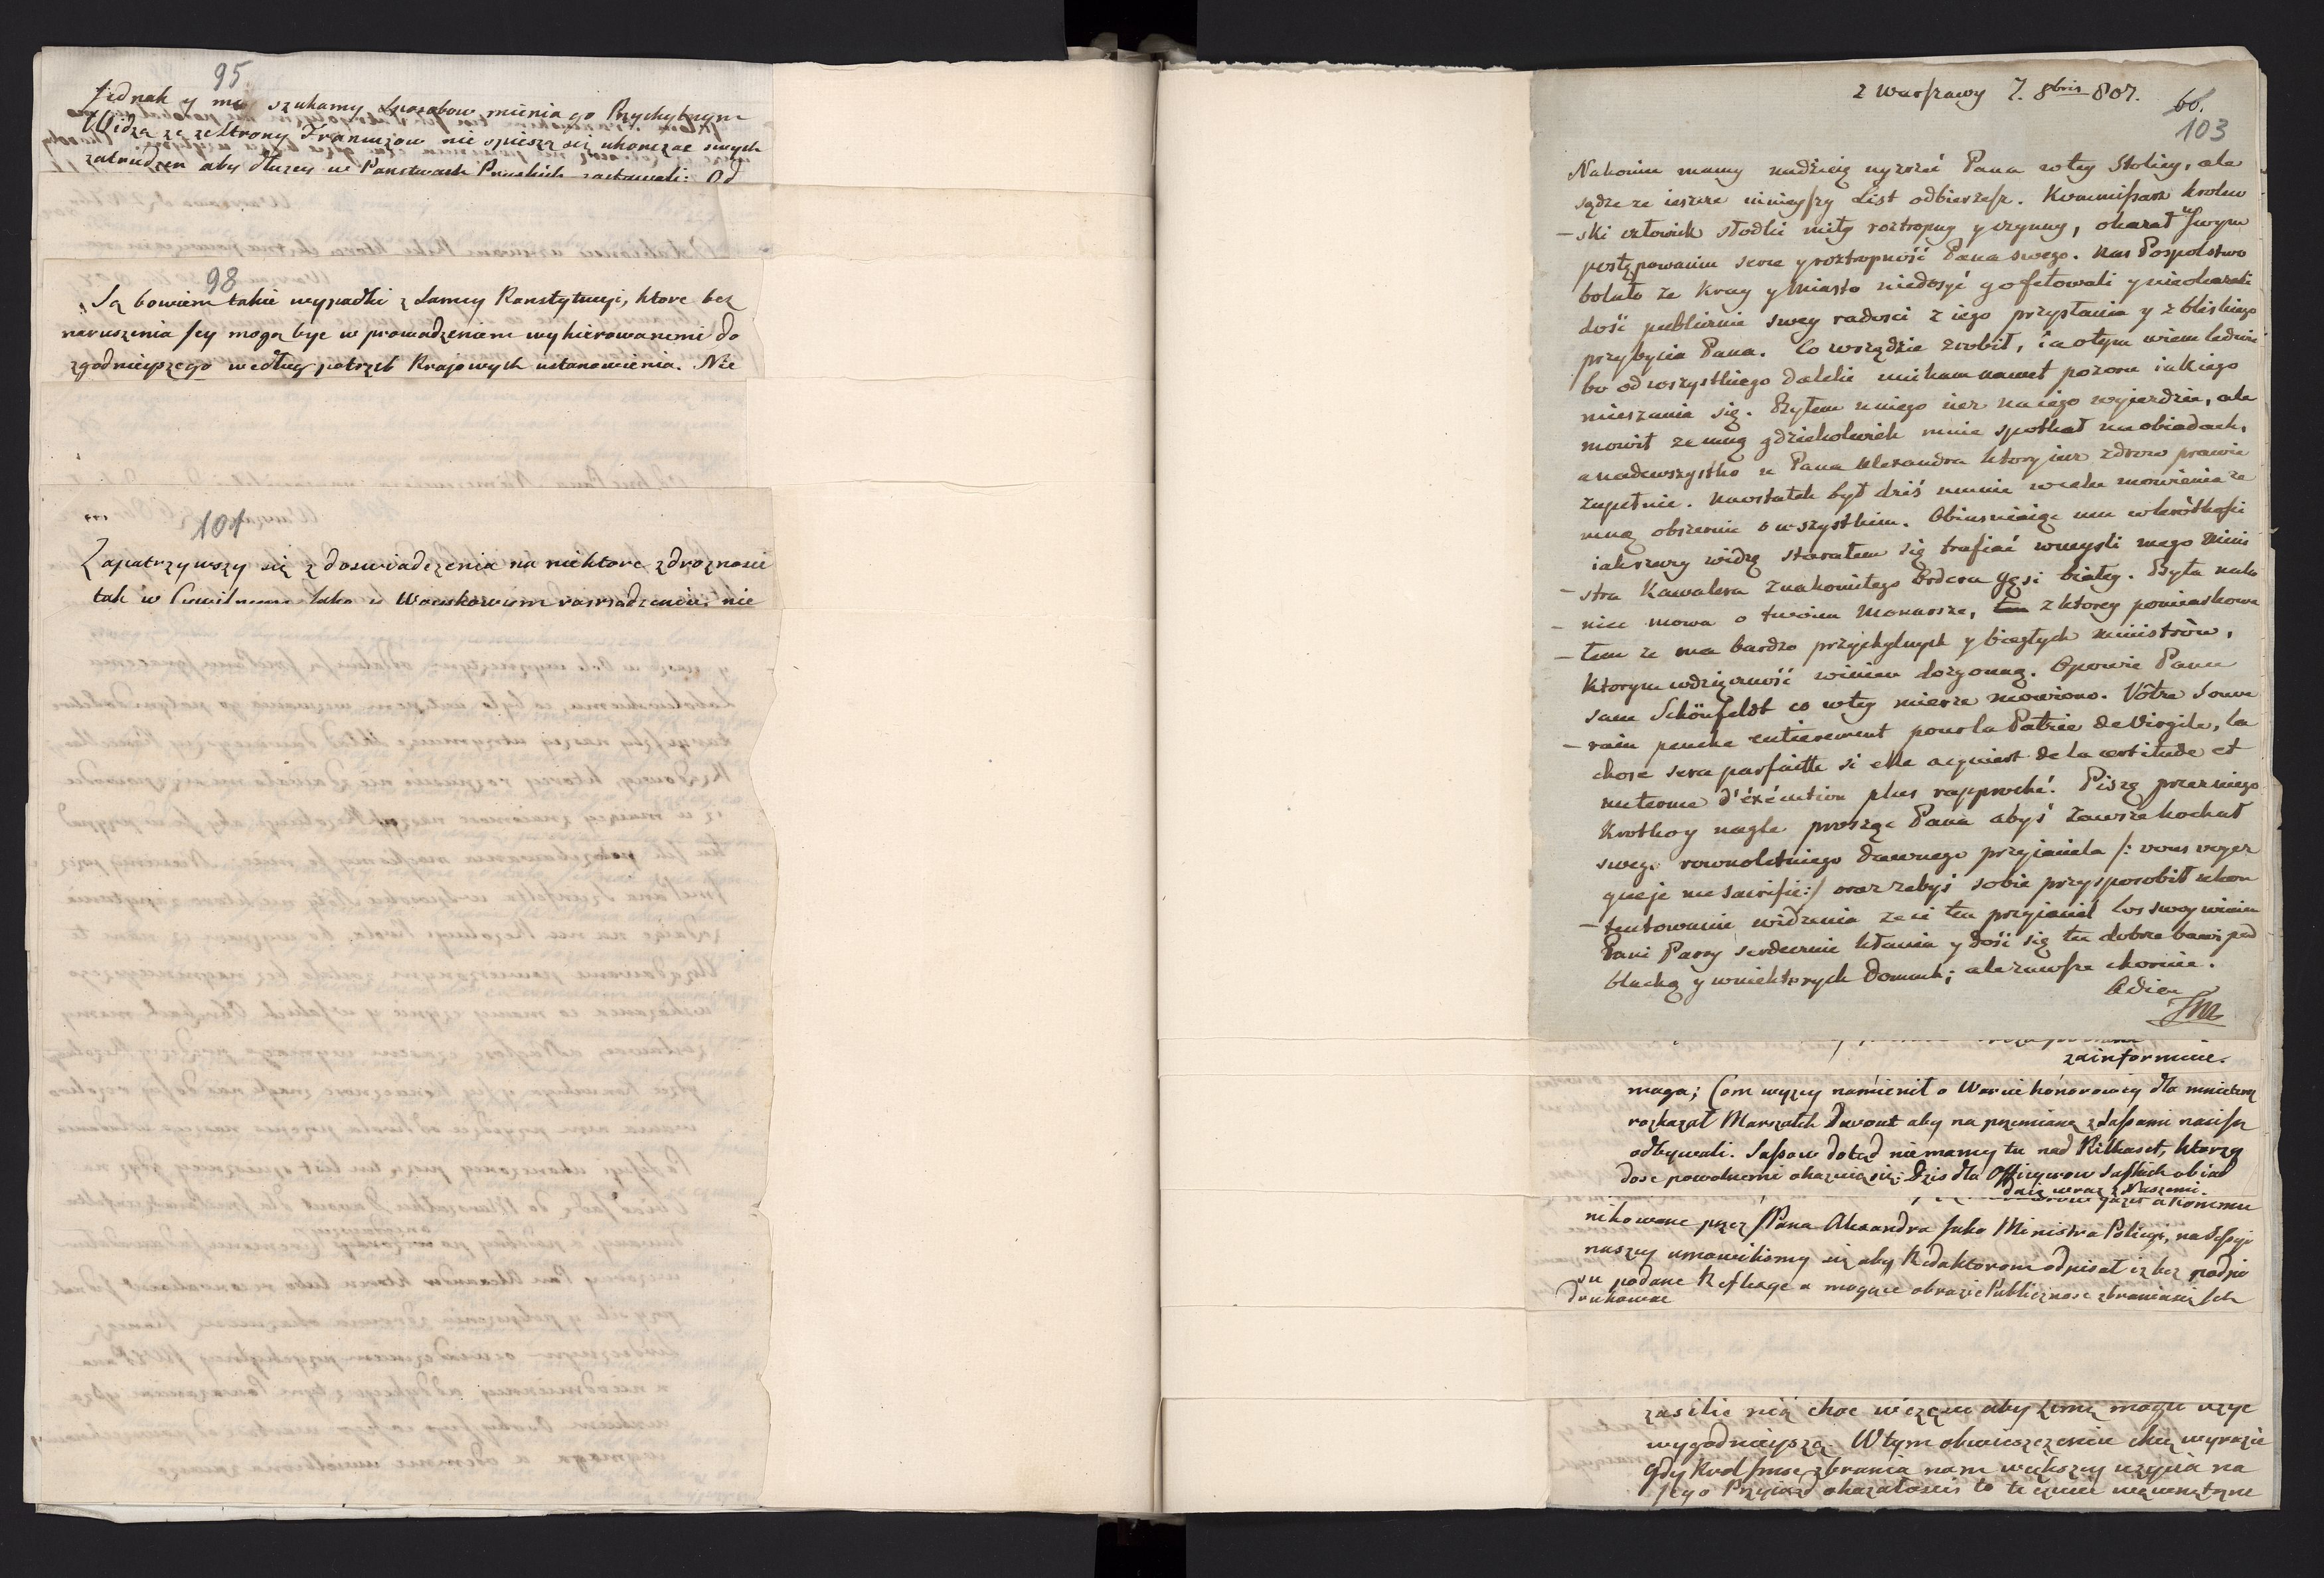 95
Jednak y my szukamy sposobow mienia go Przychylnym
Widzę ze ze strony Francuzow nie spieszą się ukonczac swych
zatrudzen aby dłuzey w Panstwach Pruskich zastawali: Od
98
Są bowiem takie wypadki z samey Konstytucyi, ktore bez
naruszenia Jey mogą byc w prowadzeniem wykierowanemi do
zgodnieyszego według potrzeb Krajowych ustanowienia. Nie
101
Zapatrzywszy się z doswiadczenia na niektore zdroznosci
tak w Cywilnym Jako w Woyskowym rozrządzeniu, nie
z Warszawy 7. 8bris 807.
66.
103
Nakoniec mamy nadzieię uyzrzeć Pana w tey Stolicy, ale
sądzę ze ieszcze ninieyszy List odbierzesz. Kommissarz krolew
-ski człowiek słodki miły roztropny y czynny, okazał w swym
postępowaniu serce y roztropność Pana swego. Nas Pospolstwo
bolało ze Kray y Miasto niedosyć go fetowali y nieokazali
dość publicznie swey radości z iego przysłania y z bliskiego
przybycia Pana. Co w rządzie zrobił, ia o tym wiem ledwie
bo od wszystkiego daleki unikam nawet pozoru iakiego
mieszania się. Byłem u niego iuz na iego wyjezdzie, ale
mowił ze mną gdziekolwiek mnie spotkał na obiadach,
a nadewszystko u Pana Alexandra ktory iuz zdrow prawie
zupełnie. Nawstatek był dziś u mnie w celu mowienia ze
mną obszernie o wszystkim. Obiasniaiąc mu w krótkości
iak rzeczy widzę starałem się trafiać w mysli mego Mini
-stra Kawalera znakomitego Orderu Gęsi białey. Była nako
-niec mowa o twoim Monarsze, z ktorey pomiarkowa
-łem ze ma bardzo przychylnych y biegłych Ministrów,
ktorym wdzięczność winien dozgonną. Opowie Panu
sam Schönfeldt co w tey mierze mowiono. Vôtre Souve
-rain penche entierement pour la Patrie de Virgile, la
chose sera parfaitte si elle acquiert de la certitude et
un terme d'éxécution plus rapproché. Piszę przez niego
krotko y nagle prosząc Pana abyś zawsze kochał
swego rownoletniego dawnego przyjaciela /: vous voyez
que je me sacrifie :/ oraz zebyś sobie przysposobił ukon
-tentowanie widzenia ze ci ten przyjaciel los swoy winien
Pani Parys serdecznie kłania y dość się tu dobrze bawi pod
blachą y w niektorych domach; ale zawsze skromnie.
Adieu
zainformuie.
maga; Com wyzey namienił o Warcie honorowey dla mnie teraz
rozkazał Marszałek Davout aby na przemianę z Sassami nasi Ją
odbywali. Sassow dotąd nie mamy tu nad Kilkaset, ktorzy
dosc powolnemi okazuią się: Dzis dla Officyerow Saskich obiad
daię wraz z Naszemi.
nikowane przez JPana Alexandra Jako Ministra Policyi, na Sessyi
naszey umowilismy się aby Redaktorom odpisał iz bez podpi
su podane Reflexye a mogące obrazic Publicznosc zbrania się Ich
drukowac
zasilic nią choc w częsci aby zimę mogli uzyc
wygodnieyszą. W tym obwieszczeniu chcę wyrazic
gdy Krol Jmsc zbrania nam większey uzycia na
Jego Przyjazd okazałosci to te czucie wewnętrzne